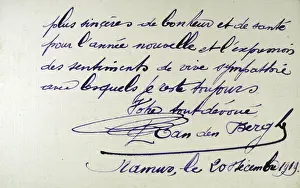 plus sincères de bonheur et de santé
pour l'année nouvelle et l'expression
des sentiments de vive sympathie
avec lesquels je reste toujours
Votre tout dévoué
Van den Bergh
Namur, le 20 Décembre 1919